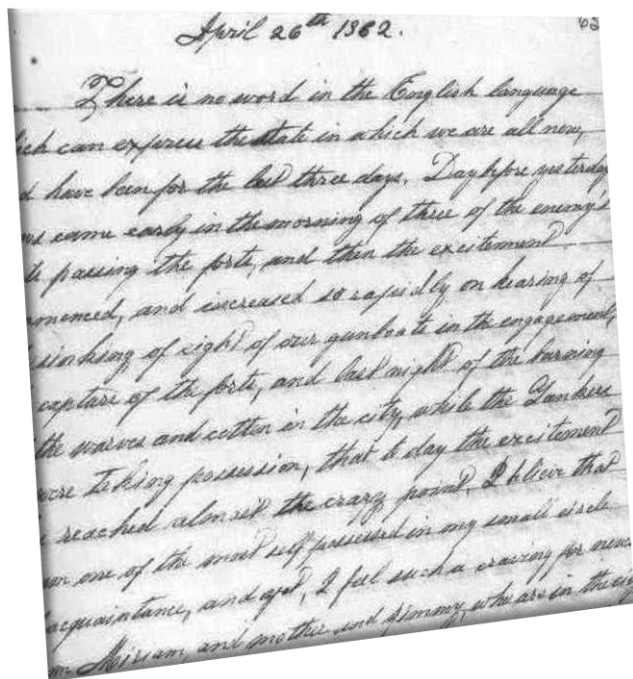 April 26th 1862.
62
There is no word in the English language
which can express the state in which we are all now,
and have been for the last three days. Day before yesterday
news came early in the morning of three of the enemy's
boats passing the forts, and then the excitement
commenced, and increased so rapidly on hearing of
sinking of eight of our gunboats in the engagement,
capture of the forts, and last night of the burning
the warves and cotton in the city, while the Yankees
were taking possession, that to day the excitement
reached almost the crazy point. I believe that
one of the most self possessed in my small circle
acquaintance, and yet, I feel such a craizing for news
Miriam, and mother and Jimmy, who are in the city